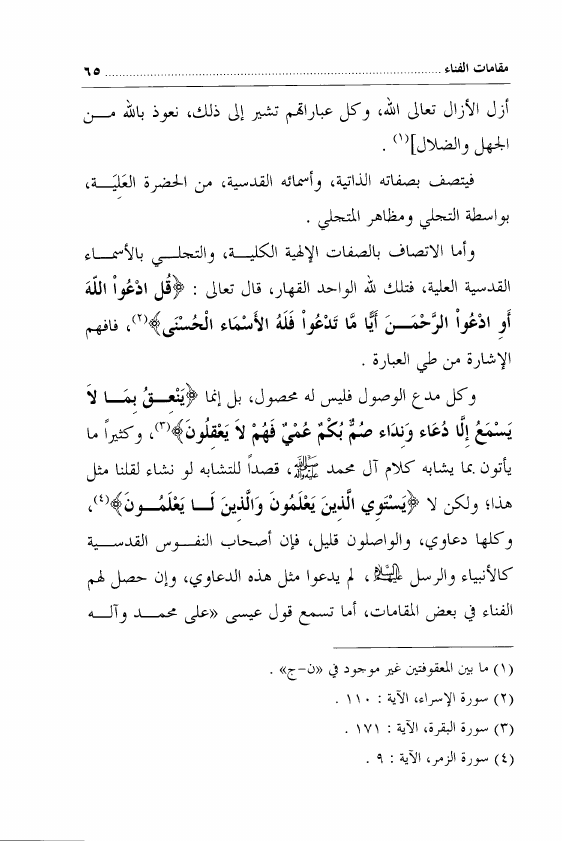 مقامات الفناء ........................................................................ ٦٥
أزل الأزال تعالى الله، وكل عباراتهم تشير إلى ذلك، نعوذ بالله مــن
الجهل والضلال](١) .
فيتصف بصفاته الذاتية، وأسمائه القدسية، من الحضرة العَلِيَــة،
بواسطة التجلي ومظاهر المتجلي .
وأما الاتصاف بالصفات الإلهية الكليــة، والتجلــي بالأسمــاء
القدسية العلية، فتلك لله الواحد القهار، قال تعالى : ﴿قُلِ ادْعُواْ اللّهَ
أَوِ ادْعُواْ الرَّحْمَــنَ أَيًّا مَّا تَدْعُواْ فَلَهُ الأَسْمَاء الْحُسْنَى﴾(٢)، فافهم
الإشارة من طي العبارة .
وكل مدع الوصول فليس له محصول، بل إنما ﴿يَنْعِــقُ بِمَــا لاَ
يَسْمَعُ إِلَّا دُعَاء وَنِدَاء صُمٌّ بُكْمٌ عُمْيٌ فَهُمْ لاَ يَعْقِلُونَ﴾(٣)، وكثيراً ما
يأتون بما يشابه كلام آل محمد ﷺ، قصداً للتشابه لو نشاء لقلنا مثل
هذا؛ ولكن لا ﴿يَسْتَوِي الَّذِينَ يَعْلَمُونَ وَالَّذِينَ لَــا يَعْلَمُــونَ﴾(٤)،
وكلها دعاوي، والواصلون قليل، فإن أصحاب النفــوس القدســية
كالأنبياء والرسل ، لم يدعوا مثل هذه الدعاوي، وإن حصل لهم
الفناء في بعض المقامات، أما تسمع قول عيسى «على محمــد وآلــه
(١) ما بين المعقوفتين غير موجود في «ن-ج» .
(٢) سورة الإسراء، الآية : ١١٠ .
(٣) سورة البقرة، الآية : ١٧١ .
(٤) سورة الزمر، الآية : ٩ .